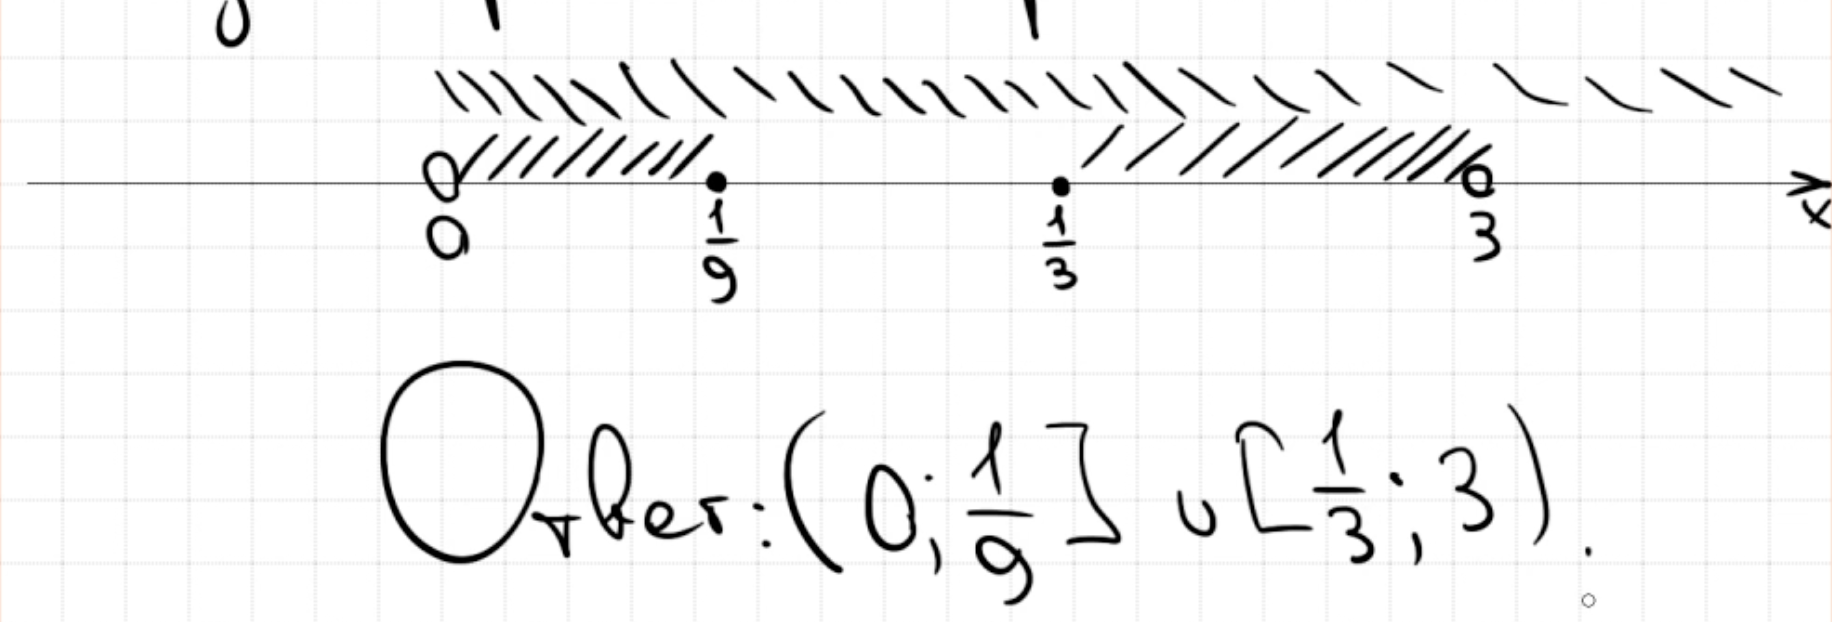 0 1/9 1/3 3 x
Ответ: (0; 1/9] ∪ [1/3; 3).